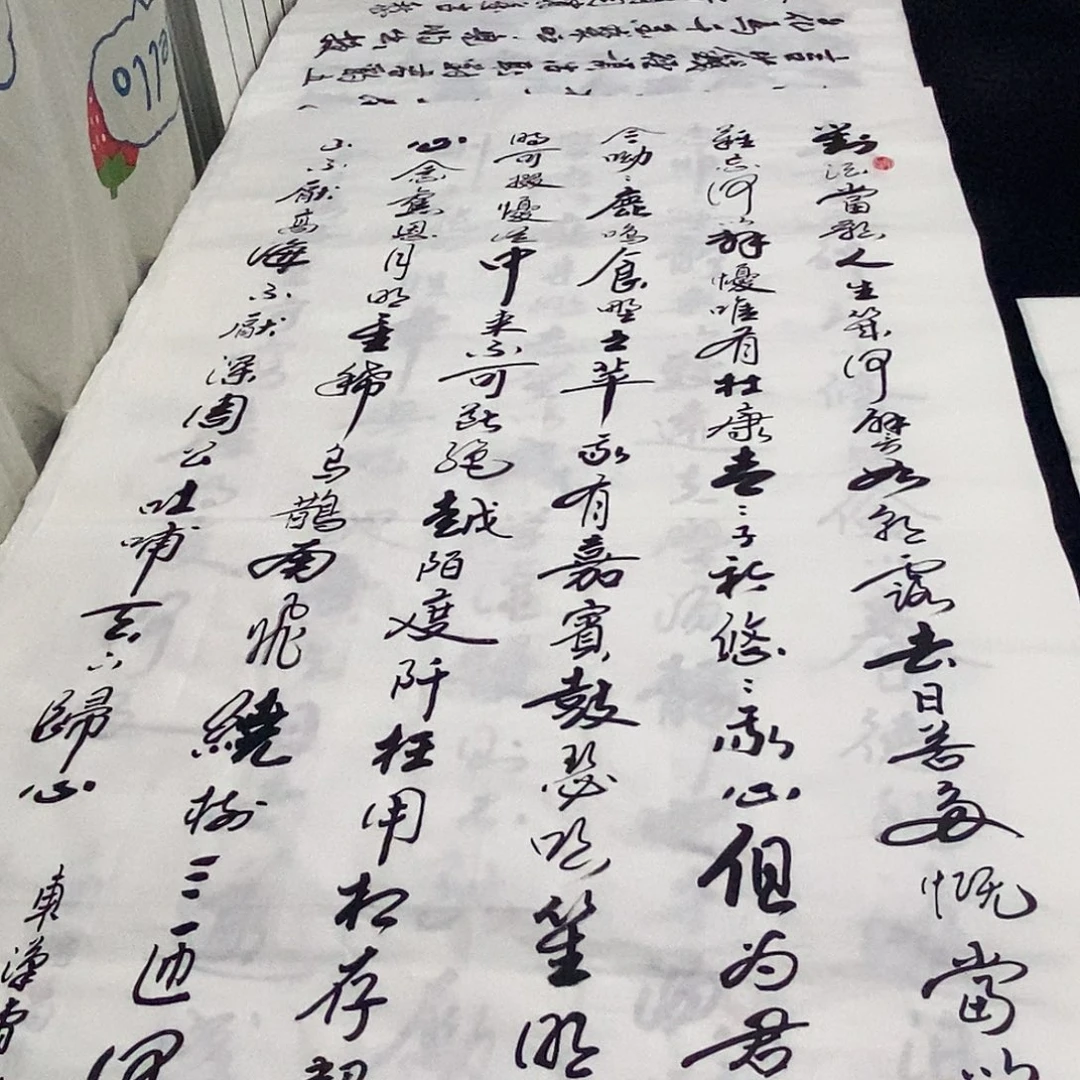 對酒當歌人生幾何譬如朝露去日苦多慨當以
難忘何以解憂唯有杜康青々子衿悠々我心但為君
今呦々鹿鳴食野之苹我有嘉賓鼓瑟吹笙明
時可掇憂從中來不可斷絕越陌度阡枉用相存契
心念舊恩月明星稀烏鵲南飛繞樹三匝何
山不厭高海不厭深周公吐哺天下歸心 車漢
ello